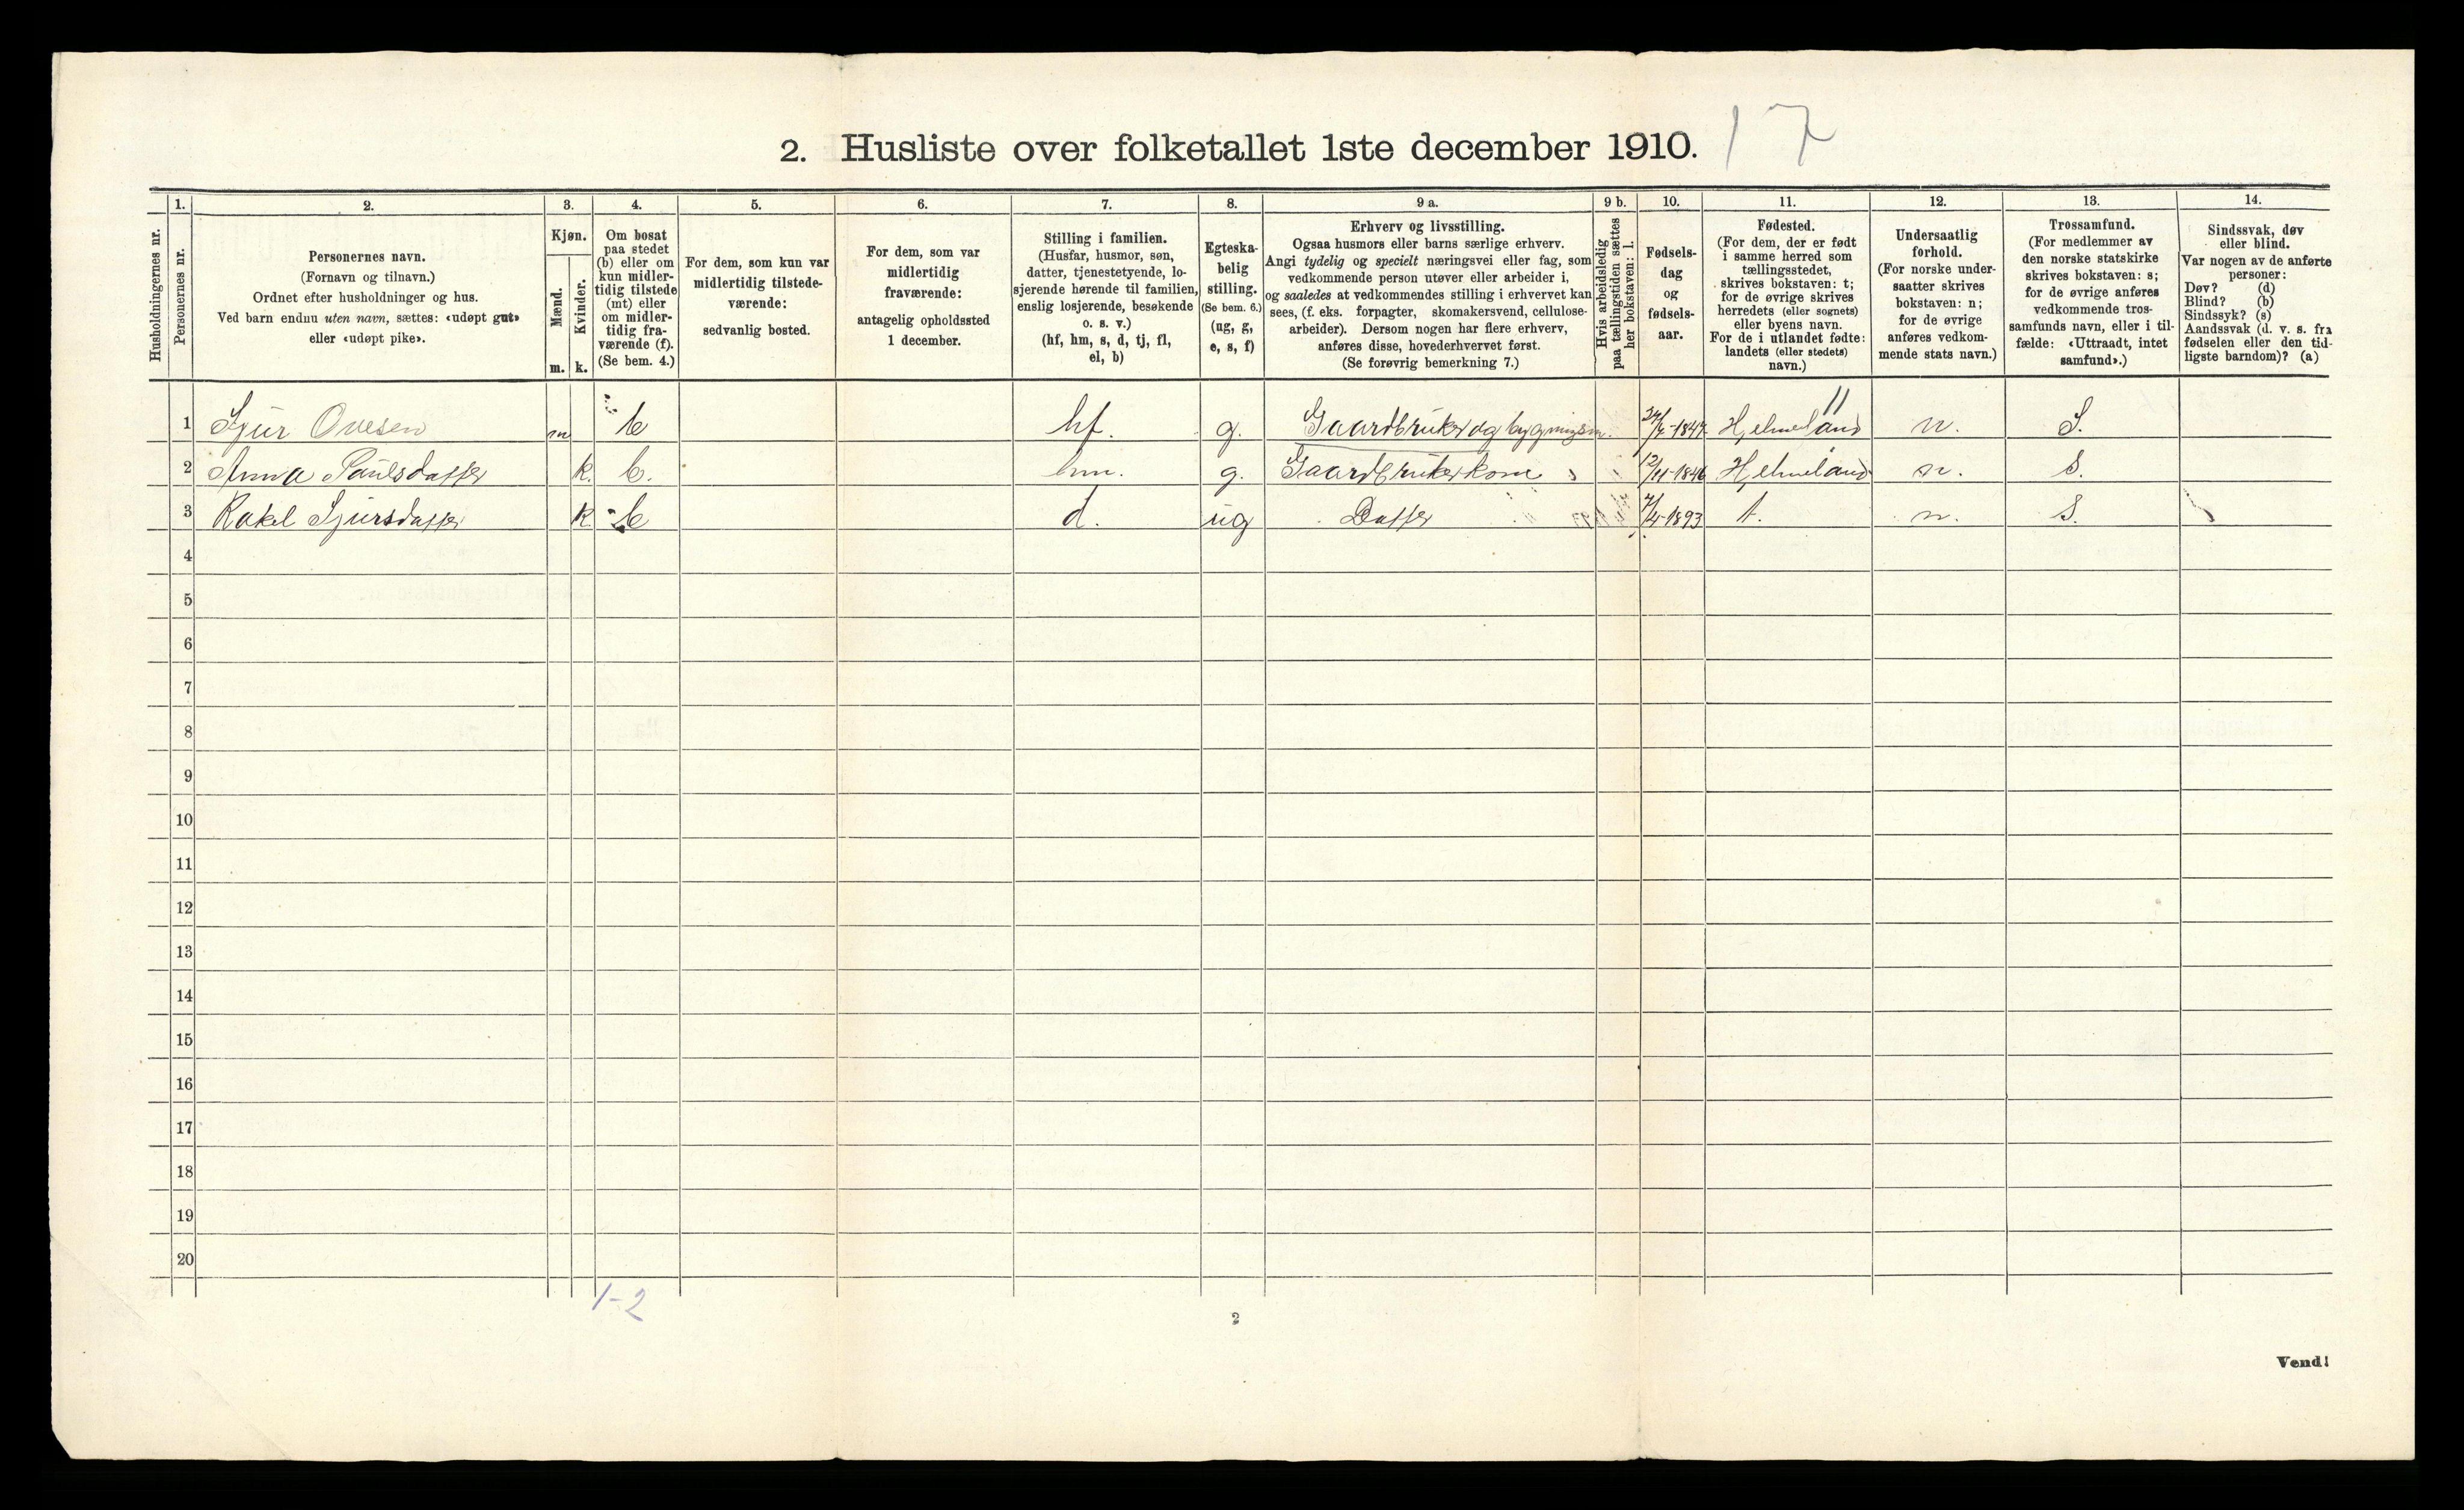 2. Husliste over folketallet 1ste december 1910. 17
Husholdningernes nr.
1.
Personernes nr.
2.
Personernes navn.
(Fornavn og tilnavn.)
Ordnet efter husholdninger og hus.
Ved barn endnu uten navn, sættes: «udøpt gut»
eller «udøpt pike».
3.
Kjøn.
Mænd.
Kvinder.
m. k.
4.
Om bosat
paa stedet
(b) eller om
kun midler-
tidig tilstede
(mt) eller
om midler-
tidig fra-
værende (f).
(Se bem. 4.)
5.
For dem, som kun var
midlertidig tilstede-
værende:
sedvanlig bosted.
6.
For dem, som var
midlertidig
fraværende:
antagelig opholdssted
1 december.
7.
Stilling i familien.
(Husfar, husmor, søn,
datter, tjenestetyende, lo-
sjerende hørende til familien,
enslig losjerende, besøkende
o. s. v.)
(hf, hm, s, d, tj, fl,
el, b)
8.
Egteska-
belig
stilling.
(Se bem. 6.)
(ug, g,
e, s, f)
9 a.
Erhverv og livsstilling.
Ogsaa husmors eller barns særlige erhverv.
Angi tydelig og specielt næringsvei eller fag, som
vedkommende person utøver eller arbeider i,
og saaledes at vedkommendes stilling i erhvervet kan
sees, (f. eks. forpagter, skomakersvend, cellulose-
arbeider). Dersom nogen har flere erhverv,
anføres disse, hovederhvervet først.
(Se forøvrig bemerkning 7.)
9 b.
Hvis arbeidsledig
paa tællingstiden sættes
her bokstaven: l.
10.
Fødsels-
dag
og
fødsels-
aar.
11.
Fødested.
(For dem, der er født
i samme herred som
tællingsstedet,
skrives bokstaven: t;
for de øvrige skrives
herredets (eller sognets)
eller byens navn.
For de i utlandet fødte:
landets (eller stedets)
navn.)
12.
Undersaatlig
forhold.
(For norske under-
saatter skrives
bokstaven: n;
for de øvrige
anføres vedkom-
mende stats navn.)
13.
Trossamfund.
(For medlemmer av
den norske statskirke
skrives bokstaven: s;
for de øvrige anføres
vedkommende tros-
samfunds navn, eller i til-
fælde: «Uttraadt, intet
samfund».)
14.
Sindssvak, døv
eller blind.
Var nogen av de anførte
personer:
Døv? (d)
Blind? (b)
Sindssyk? (s)
Aandssvak (d. v. s. fra
fødselen eller den tid-
ligste barndom)? (a)
11
1 Sjur Ovesen m b hf. g. Gaardbruker og bygningsm. Hjelmeland n. S.
2 Anna Paulsdatter k. b. hm. g. Gaardbrukerkone 12/11-1846 Hjelmeland n. S.
3 Rakel Sjursdatter k b d. ug Datter 1893 t. n. S.
4
5
6
7
8
9
10
11
12
13
14
15
16
17
18
19
20
1-2
2
Vend!